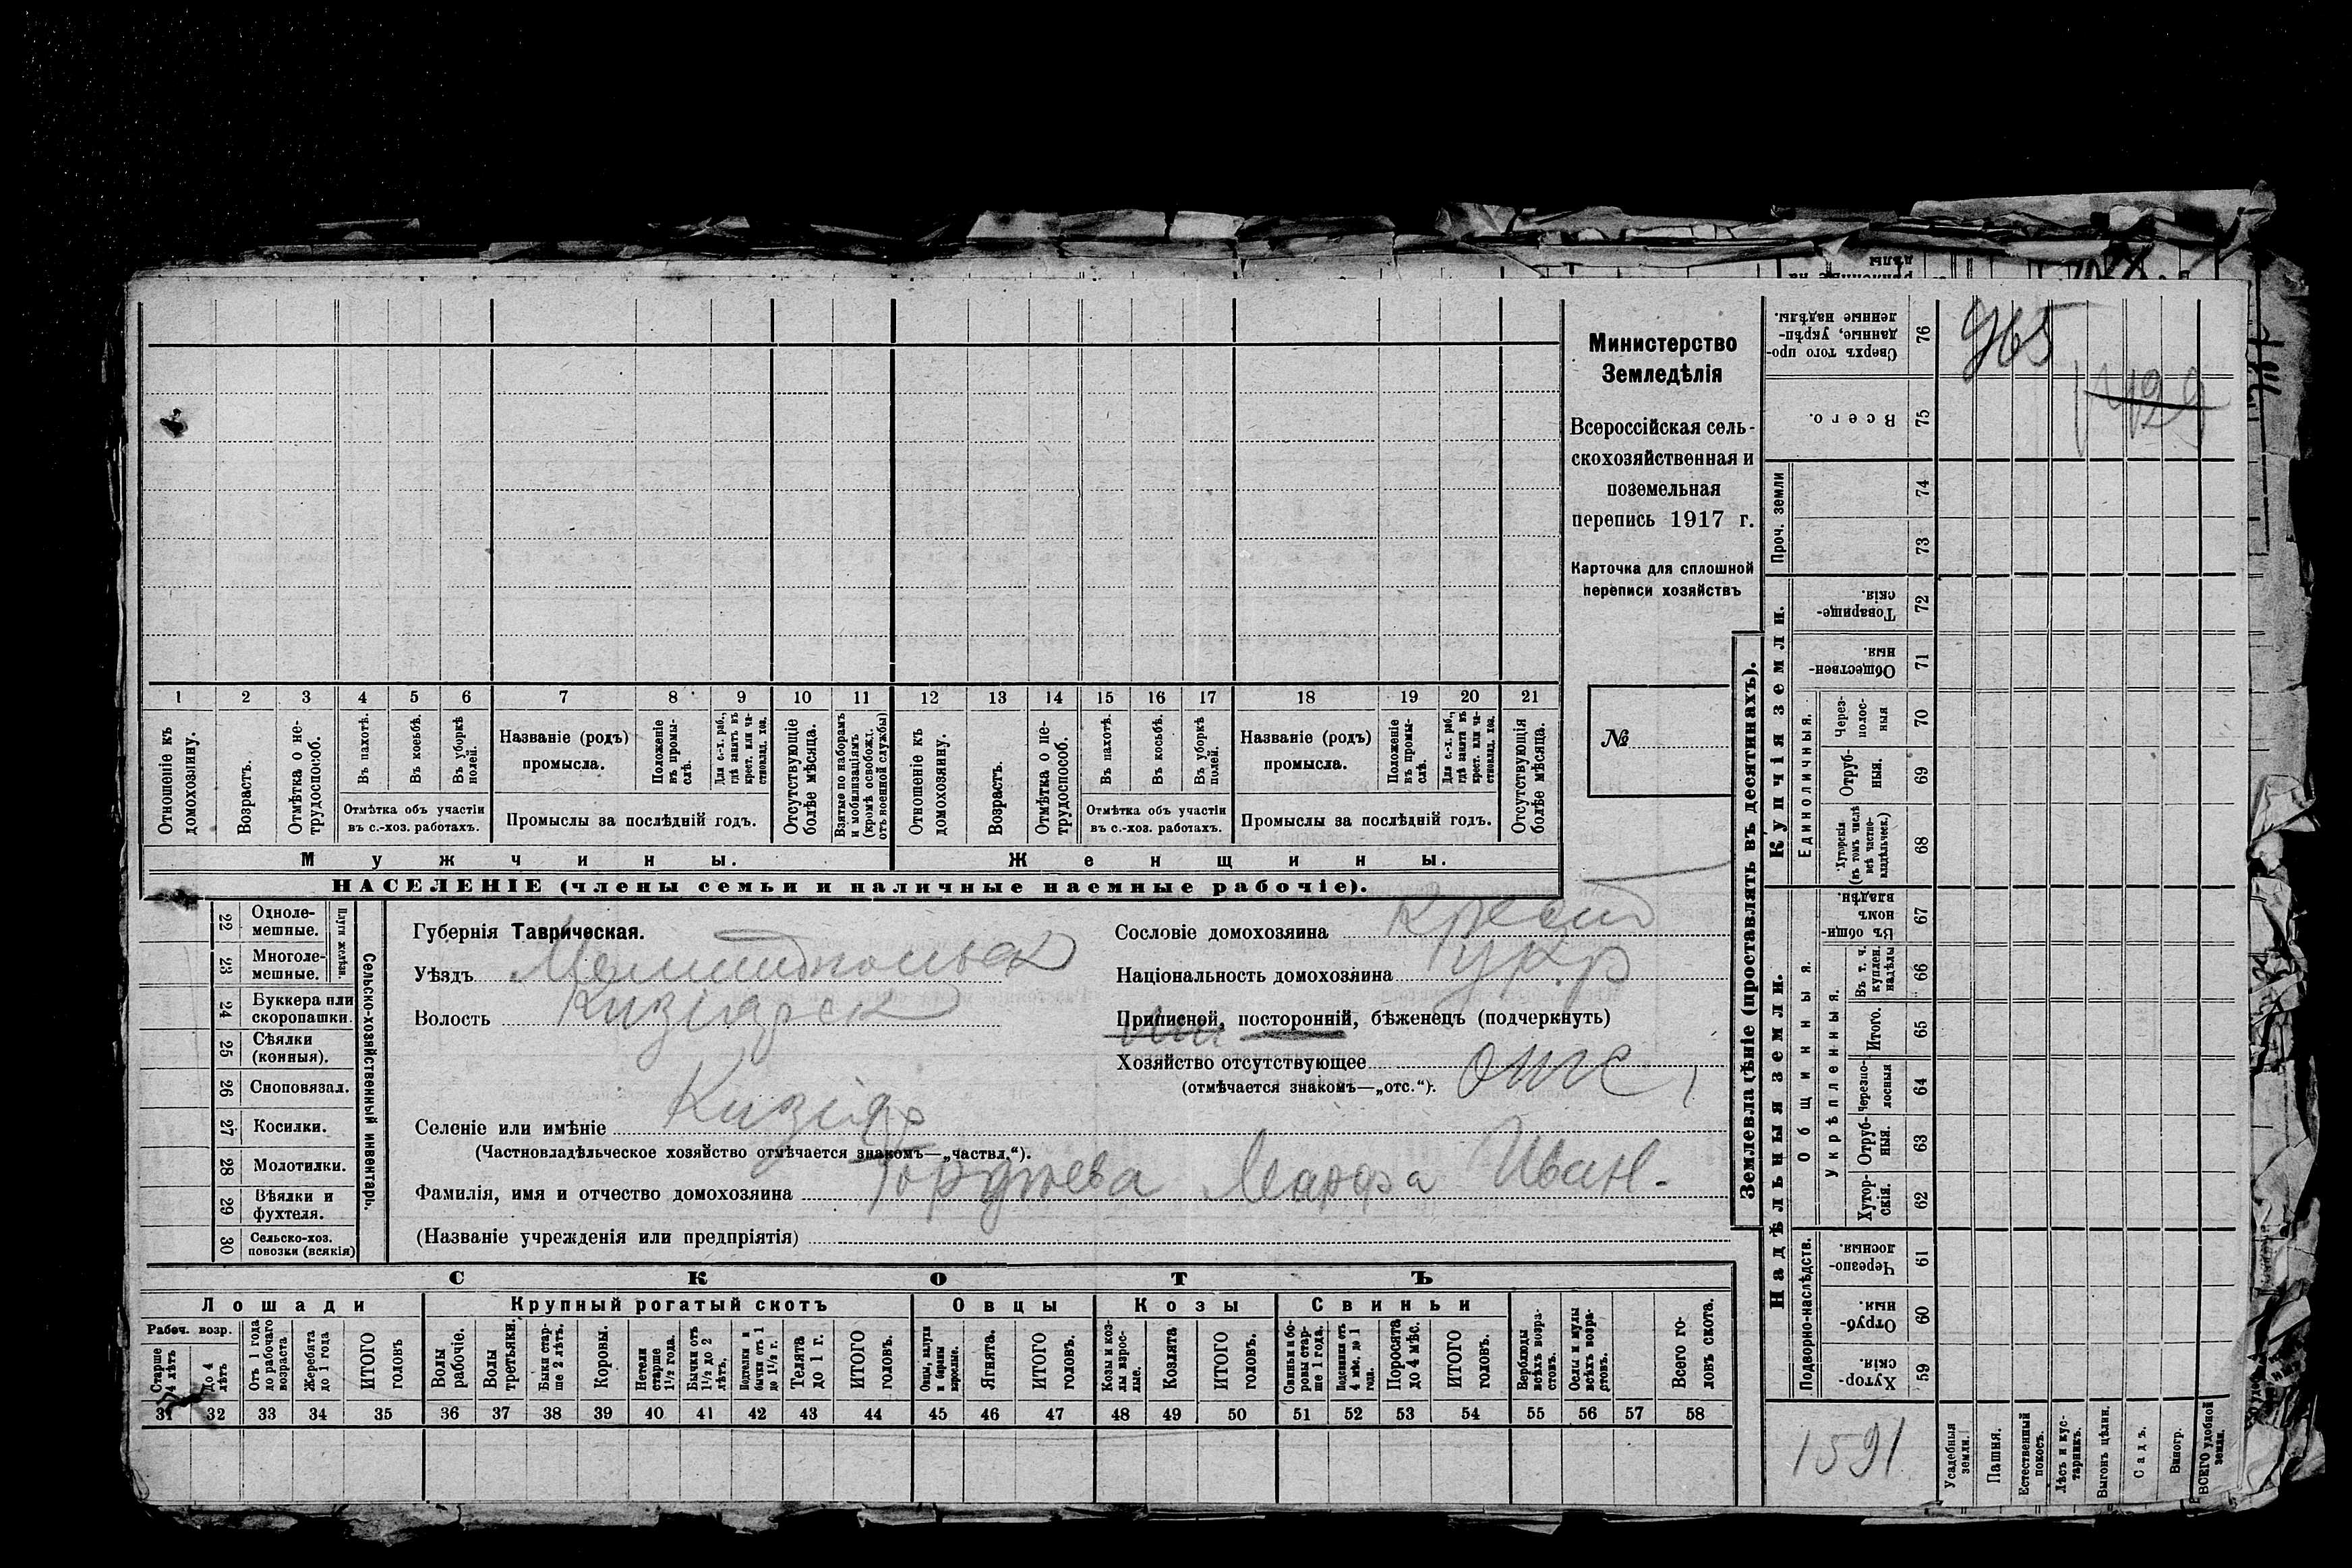 Министерство
Земледѣлія
Всероссійская сель-
скохозяйственная и
поземельная
перепись 1917 г.
Карточка для сплошной
переписи хозяйствъ
№
1 2 3 4 5 6 7 8 9 10 11 12 13 14 15 16 17 18 19 20 21
Отношеніе къ домохозяину.
Возрастъ.
Отмѣтка о не-трудоспособ.
Въ пахотѣ.
Въ косьбѣ.
Въ уборкѣ полей.
Отмѣтка объ участіи
въ с.-хоз. работахъ.
Названіе (родъ)
промысла.
Положеніе въ промы-слѣ.
Для с.-х. раб., гдѣ занятъ въ крест. или ча-стновлад. хоз.
Промыслы за послѣдній годъ.
Отсутствующіе болѣе мѣсяца.
Взятые по наборамъ и мобилизаціямъ (кромѣ освобожд. отъ военной службы)
Отношеніе къ домохозяину.
Возрастъ.
Отмѣтка о не-трудоспособ.
Въ пахотѣ.
Въ косьбѣ.
Въ уборкѣ полей.
Отмѣтка объ участіи
въ с.-хоз. работахъ.
Названіе (родъ)
промысла.
Положеніе въ промы-слѣ.
Для с.-х. раб., гдѣ занята въ крест. или ча-стновлад. хоз.
Промыслы за послѣдній годъ.
Отсутствующія болѣе мѣсяца.
Мужчины. Женщины.
НАСЕЛЕНІЕ (члены семьи и наличные наемные рабочіе).
22 Одноле-мешные.
23 Многоле-мешные.
Плуги желѣзн.
24 Буккера или скоропашки.
25 Сѣялки (конныя).
26 Сноповязал.
27 Косилки.
28 Молотилки.
29 Вѣялки и фухтеля.
30 Сельско-хоз. повозки (всякія)
Сельско-хозяйственный инвентарь.
Губернія Таврическая.
Уѣздъ Мелитопольск
Волость Кизіярск
Селеніе или имѣніе Кизіяр
(Частновладѣльческое хозяйство отмѣчается знакомъ—„частвл.“).
Фамилія, имя и отчество домохозяина Марфа Иван.
(Названіе учрежденія или предпріятія)
Сословіе домохозяина Крест
Національность домохозяина укр
Приписной, посторонній, бѣженецъ (подчеркнуть)
Хозяйство отсутствующее отс,
(отмѣчается знакомъ—„отс.“).
СКОТЪ
Лошади Крупный рогатый скотъ Овцы Козы Свиньи
Рабоч. возр.
Старше 4 лѣтъ
До 4 лѣтъ
Отъ 1 года до рабочаго возраста
Жеребята до 1 года
ИТОГО головъ
Волы рабочіе.
Волы третьяки.
Быки стар-ше 2 лѣтъ.
Коровы.
Нетели старше 1½ года.
Бычки отъ 1½ до 2 лѣтъ.
Подтелки и бычки отъ 1 до 1½ г.
Телята до 1 г.
ИТОГО головъ.
Овцы, валухи и бараны взрослые.
Ягнята.
ИТОГО головъ.
Козы и коз-лы взрос-лые.
Козлята
ИТОГО головъ.
Свиньи и бо-ровы стар-ше 1 года.
Подсвинки отъ 4 мѣс. до 1 года.
Поросята до 4 мѣс.
ИТОГО головъ.
Верблюды всѣхъ возра-стовъ.
Ослы и мулы всѣхъ возра-стовъ.
Всего го-ловъ скота.
31 32 33 34 35 36 37 38 39 40 41 42 43 44 45 46 47 48 49 50 51 52 53 54 55 56 57 58
Землевладѣніе (проставлять въ десятинахъ).
Надѣльныя земли. Купчія земли.
Проч. земли
76 Сверхъ того про-данные, укрѣп-ленные надѣлы.
75 Всего.
74
73
72 Товарище-скія.
71 Обществен-ныя.
Единоличныя.
70 Через-полос-ныя
69 Отруб-ныя.
68 Хуторскія (въ томъ числѣ всѣ частно-владѣльческ.)
Общинныя.
67 Въ общин-номъ владѣн.
Укрѣпленныя.
66 Въ т. ч. куплен. надѣлы
65 Итого.
64 Черезпо-лосныя
63 Отруб-ныя.
62 Хутор-скія.
Подворно-наслѣдств.
61 Черезпо-лосныя.
60 Отруб-ныя.
59 Хутор-скія.
Усадебныя земли.
Пашня.
Естественный покосъ.
Лѣсъ и кус-тарникъ.
Выгонъ цѣлин.
Садъ.
Виногр.
ВСЕГО удобной земли.
965
1591